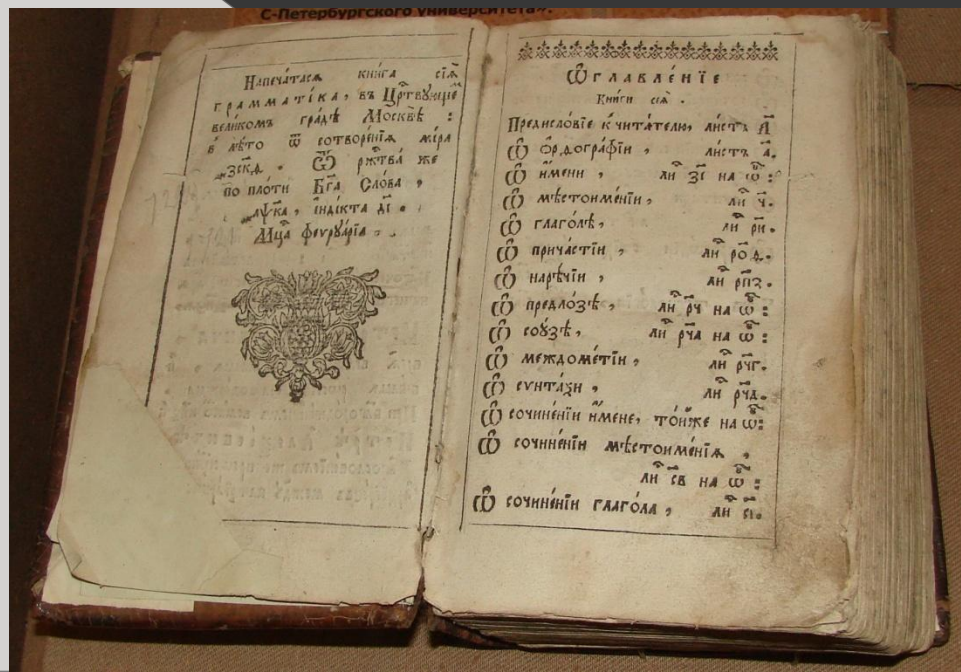 С-Петербургского университета».
Напеча́тасѧ кни́га сїѧ̀
грамматі́ка, въ Црⷭ҇твꙋющіеⷨ
вели́комъ гра́дѣ Москвѣ̀ :
в̾ лѣ́то ѿ сотворе́нїѧ мі́ра
҂зс꙯кд. Ѿ ржⷭ҇тва́ же
по пло́ти Бг҃а Сло́ва ,
҂аѱ҃ка , їнді́кта д҃і .
Мцⷭ҇а феврꙋа́рїа .
Ѡ҆главле́нїе
Кни́ги сеѧ̀ .
Предисло́вїе к̾ чита́телю, ли́стъ а҃
Ѿ ѻ҆рѳогра́фїи , ли́стъ а҃.
Ѿ и҆́мени , лиⷭ҇ з҃і на ѡ҆б :
Ѿ мѣстоиме́нїи , лиⷭ҇ ч҃.
Ѿ глаго́лѣ , лиⷭ҇ р҃и.
Ѿ прича́стїи , лиⷭ҇ ро҃д.
Ѿ нарѣ́чїи , лиⷭ҇ рп҃з.
Ѿ предло́зѣ , лиⷭ҇ рч҃ на ѡ҆б :
Ѿ сою́зѣ , лиⷭ҇ рч҃а на ѡ҆б :
Ѿ междоме́тїи , лиⷭ҇ рч҃г.
Ѿ сѵнта́ѯи , лиⷭ҇ рч҃д.
Ѿ сочине́нїи и҆́мене, то́йже на ѡ҆б :
Ѿ сочине́нїи мѣстоиме́нїѧ ,
лиⷭ҇ с҃в на ѡ҆б :
Ѿ сочине́нїи глаго́ла , лиⷭ҇ с҃і.